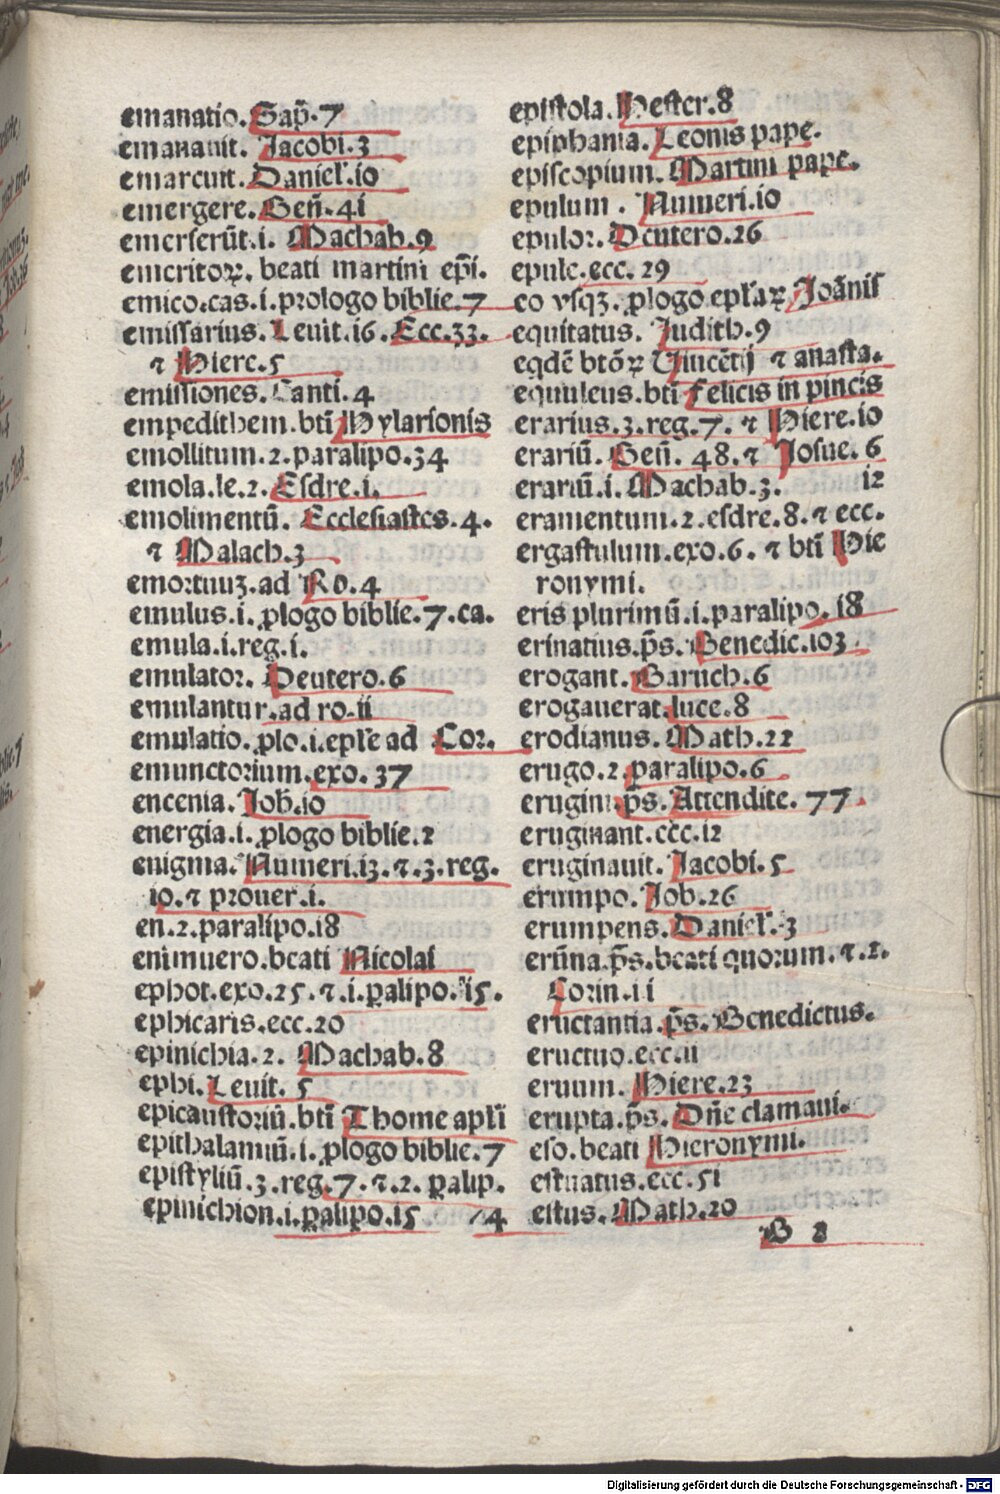 emanatio. Sap̄. 7
emanauit. Jacobi. 3
emarcuit. Danieł. io
emergere. Gen̄. 4i
emerserūt. i. Machab. 9
emeritoꝝ. beati martini ep̄i.
emico. cas. i. prologo biblie. 7
emissarius. Leuit. i6. Ecc. 33.
⁊ Hiere. 5
emissiones. Canti. 4
empedithem. btī Hylarionis
emollitum. 2. paralipo. 34
emola. le. 2. Esdre. i.
emolimentū. Ecclesiastes. 4.
⁊ Malach. 3
emortuuꝫ. ad Ro. 4
emulus. i. ꝓlogo biblie. 7. ca.
emula. i. reg. i.
emulator. Deutero. 6
emulantur. ad ro. ii
emulatio. ꝓlo. i. epl̄e ad Cor.
emunctorium. exo. 37
encenia. Joh̄. io
energia. i. ꝓlogo biblie. 2
enigma. Numeri. i3. ⁊. 3. reg.
io. ⁊ prouer. i.
en. 2. paralipo. i8
enimuero. beati Nicolai
ephot. exo. 25. ⁊. i. ꝑalipo. i5.
ephicaris. ecc. 20
epinichia. 2. Machab. 8
ephi. Leuit. 5
epicaustoriū. btī Thome apl̄i
epithalamiū. i. ꝓlogo biblie. 7
epistyliū. 3. reg. 7. ⁊. 2. ꝑalip.
epinichion. i. ꝑalipo. i5 /4
epistola. Hester. 8
epiphania. Leonis pape.
episcopium. Martini pape.
epulum. Numeri. io
epulor. Deutero. 26
epule. ecc. 29
eo vsqꝫ. ꝓlogo epl̄aꝝ Joānis
equitatus. Judith. 9
eqdē btōꝝ Vincētij ⁊ anasta.
equuleus. btī felicis in pincis
erarius. 3. reg. 7. ⁊ Hiere. io
erariū. Gen̄. 48. ⁊ Josue. 6
erariū. i. Machab. 3. i2
eramentum. 2. esdre. 8. ⁊ ecc.
ergastulum. exo. 6. ⁊ btī Hie
ronymi.
eris plurimū. i. paralipo. i8
erinatius. p̄s. Benedic. io3
erogant. Baruch. 6
erogauerat. luce. 8
erodianus. Math. 22
erugo. 2. paralipo. 6
erugini. p̄s. Attendite. 77.
eruginant. ecc. i2
eruginauit. Jacobi. 5
erumpo. Job. 26
erumpens. Danieł. 3
erūna. p̄s. beati quorum. ⁊. 2.
Corin. ii
eructantia. p̄s. Benedictus.
eructuo. ecc. ii
eruum. Hiere. 23
erupta. p̄s. Dn̄e clamaui.
eso. beati Hieronymi.
estuatus. ecc. 5i
estus. Math. 20
B 2
Digitalisierung gefördert durch die Deutsche Forschungsgemeinschaft - DFG